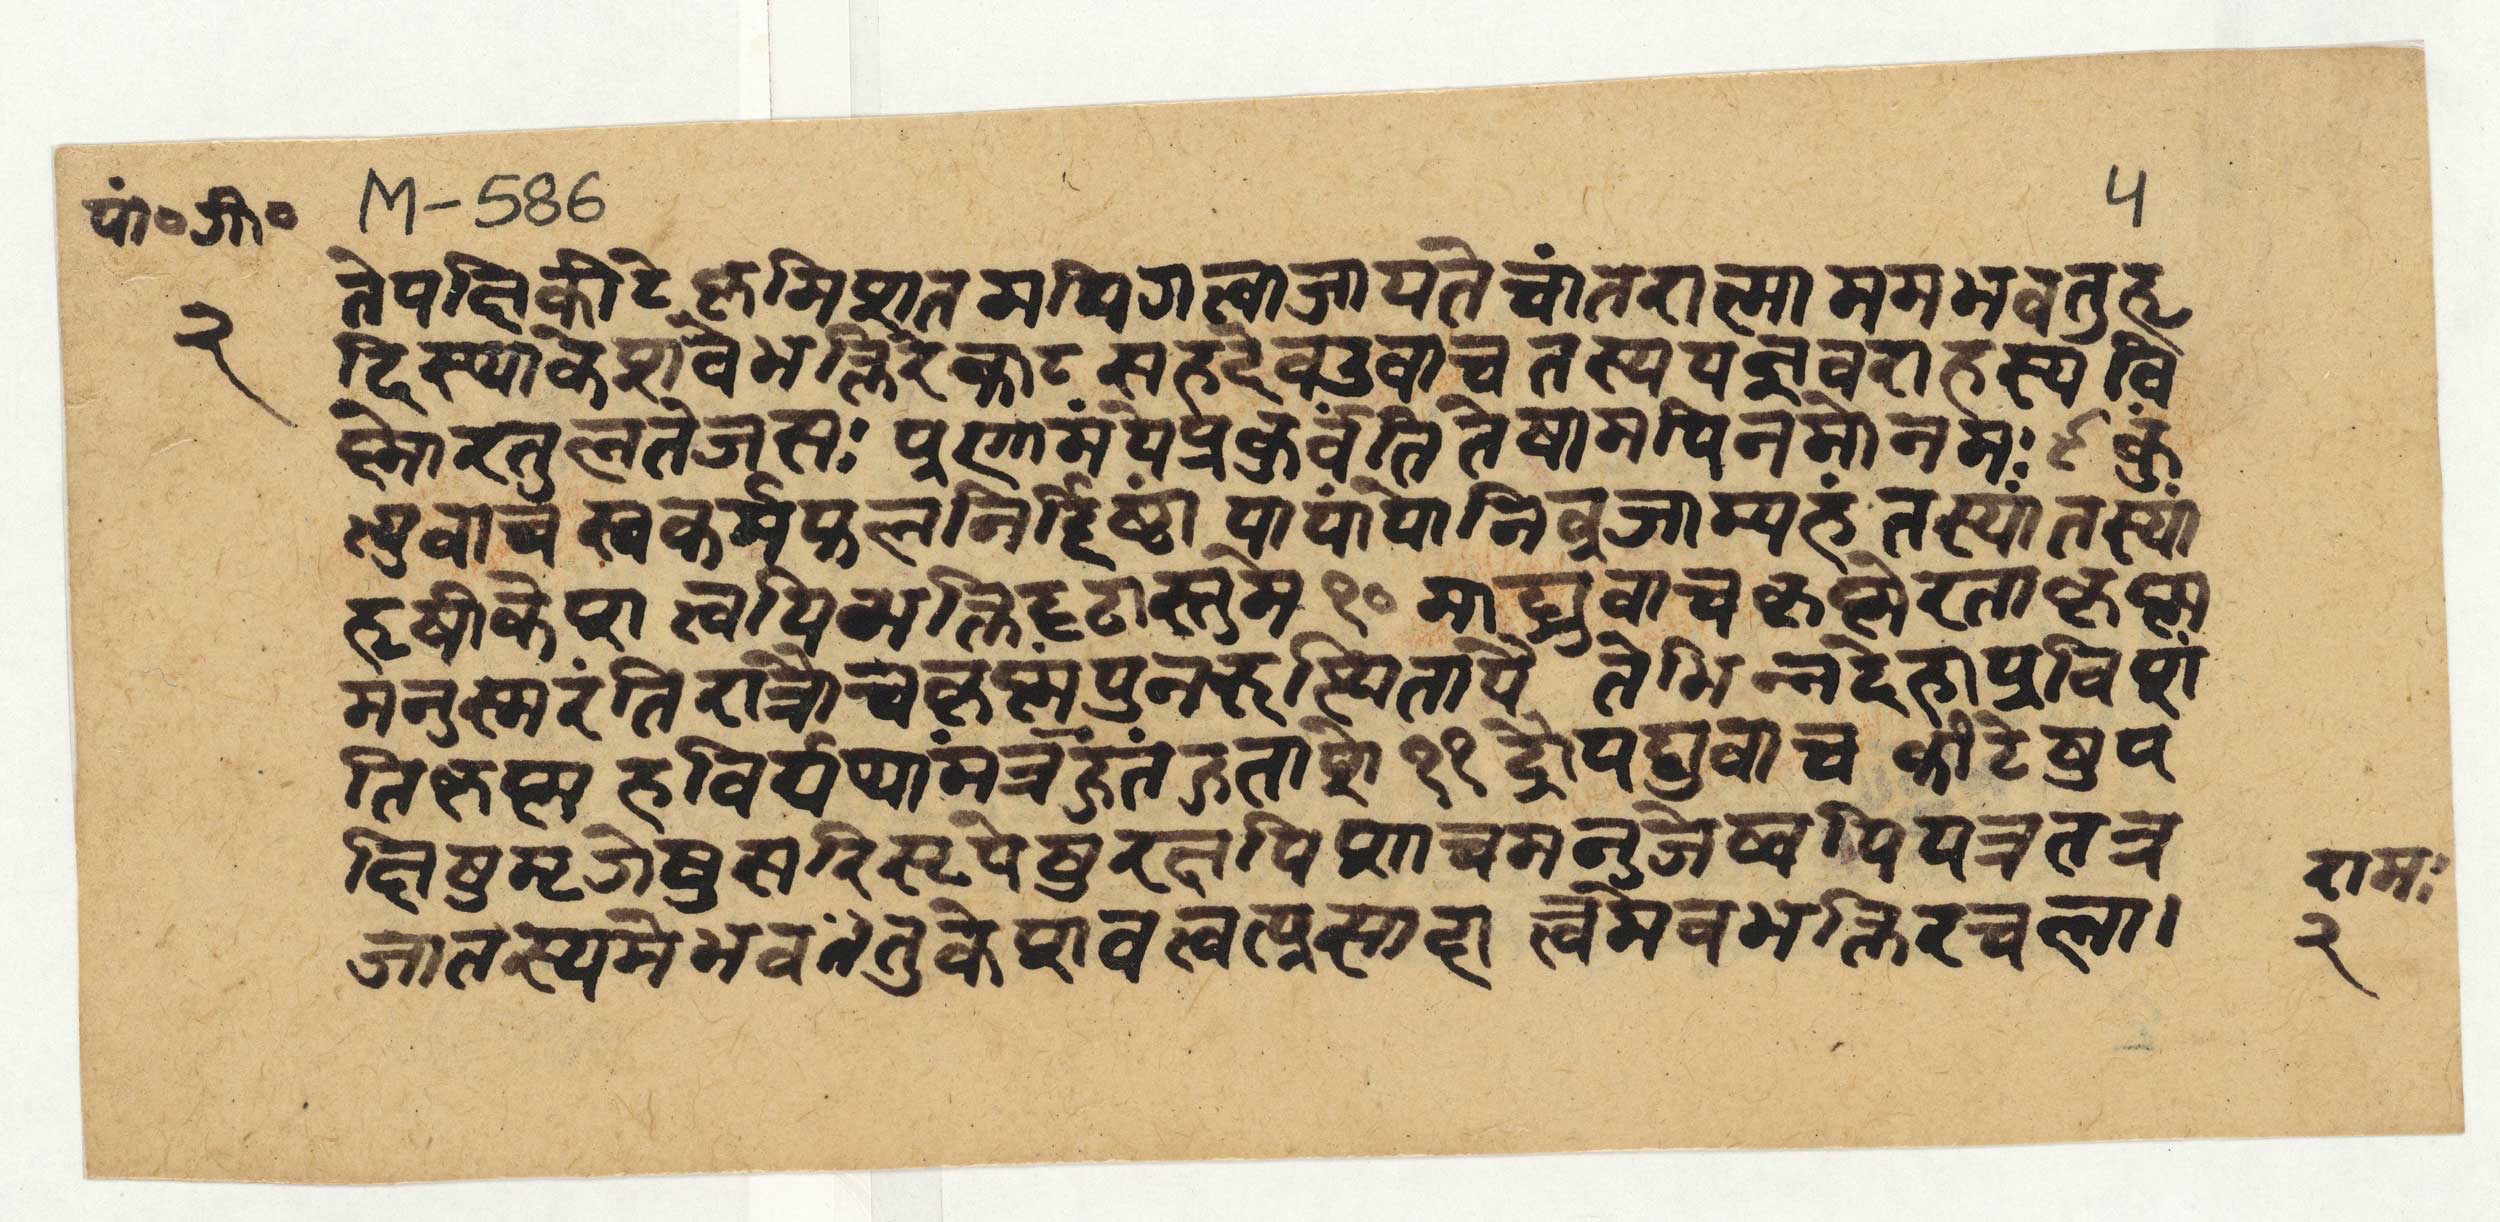 पां॰गी॰
M-586
५
२
तेपक्षिकीटेकृमिशतमपिगत्वाजायतेचांतरात्माममभवतुहृ
दिस्थाकेशवेभक्तिरेका८ सहदेवउवाच तस्ययज्ञवराहस्यवि
ष्णोरतुलतेजसः प्रणामंयेप्रकुर्वंतितेषामपिनमोनमः ९ कुं
त्युवाच स्वकर्मफलनिर्दिष्टां यांयांयोनिंव्रजाम्यहं तस्यांतस्यां
हृषीकेश त्वयिभक्तिदृढास्तुमे १० माद्र्युवाच कृष्णेरताकृष्ण
मनुस्मरंतिरात्रौचकृष्णंपुनरुत्थितायै तेभिन्नदेहाप्रविशं
तिकृष्ण हविर्यथामंत्रंहुतंहुताशे ११ द्रोपद्युवाच कीटेषुप
क्षिषुमृगेषुसरिसृपेषुरक्षपिशाचमनुजेष्वपियत्रतत्र
जातस्यमेभवतुकेशवत्वत्प्रसादा त्वमेवभक्तिरचला।
रामः
२